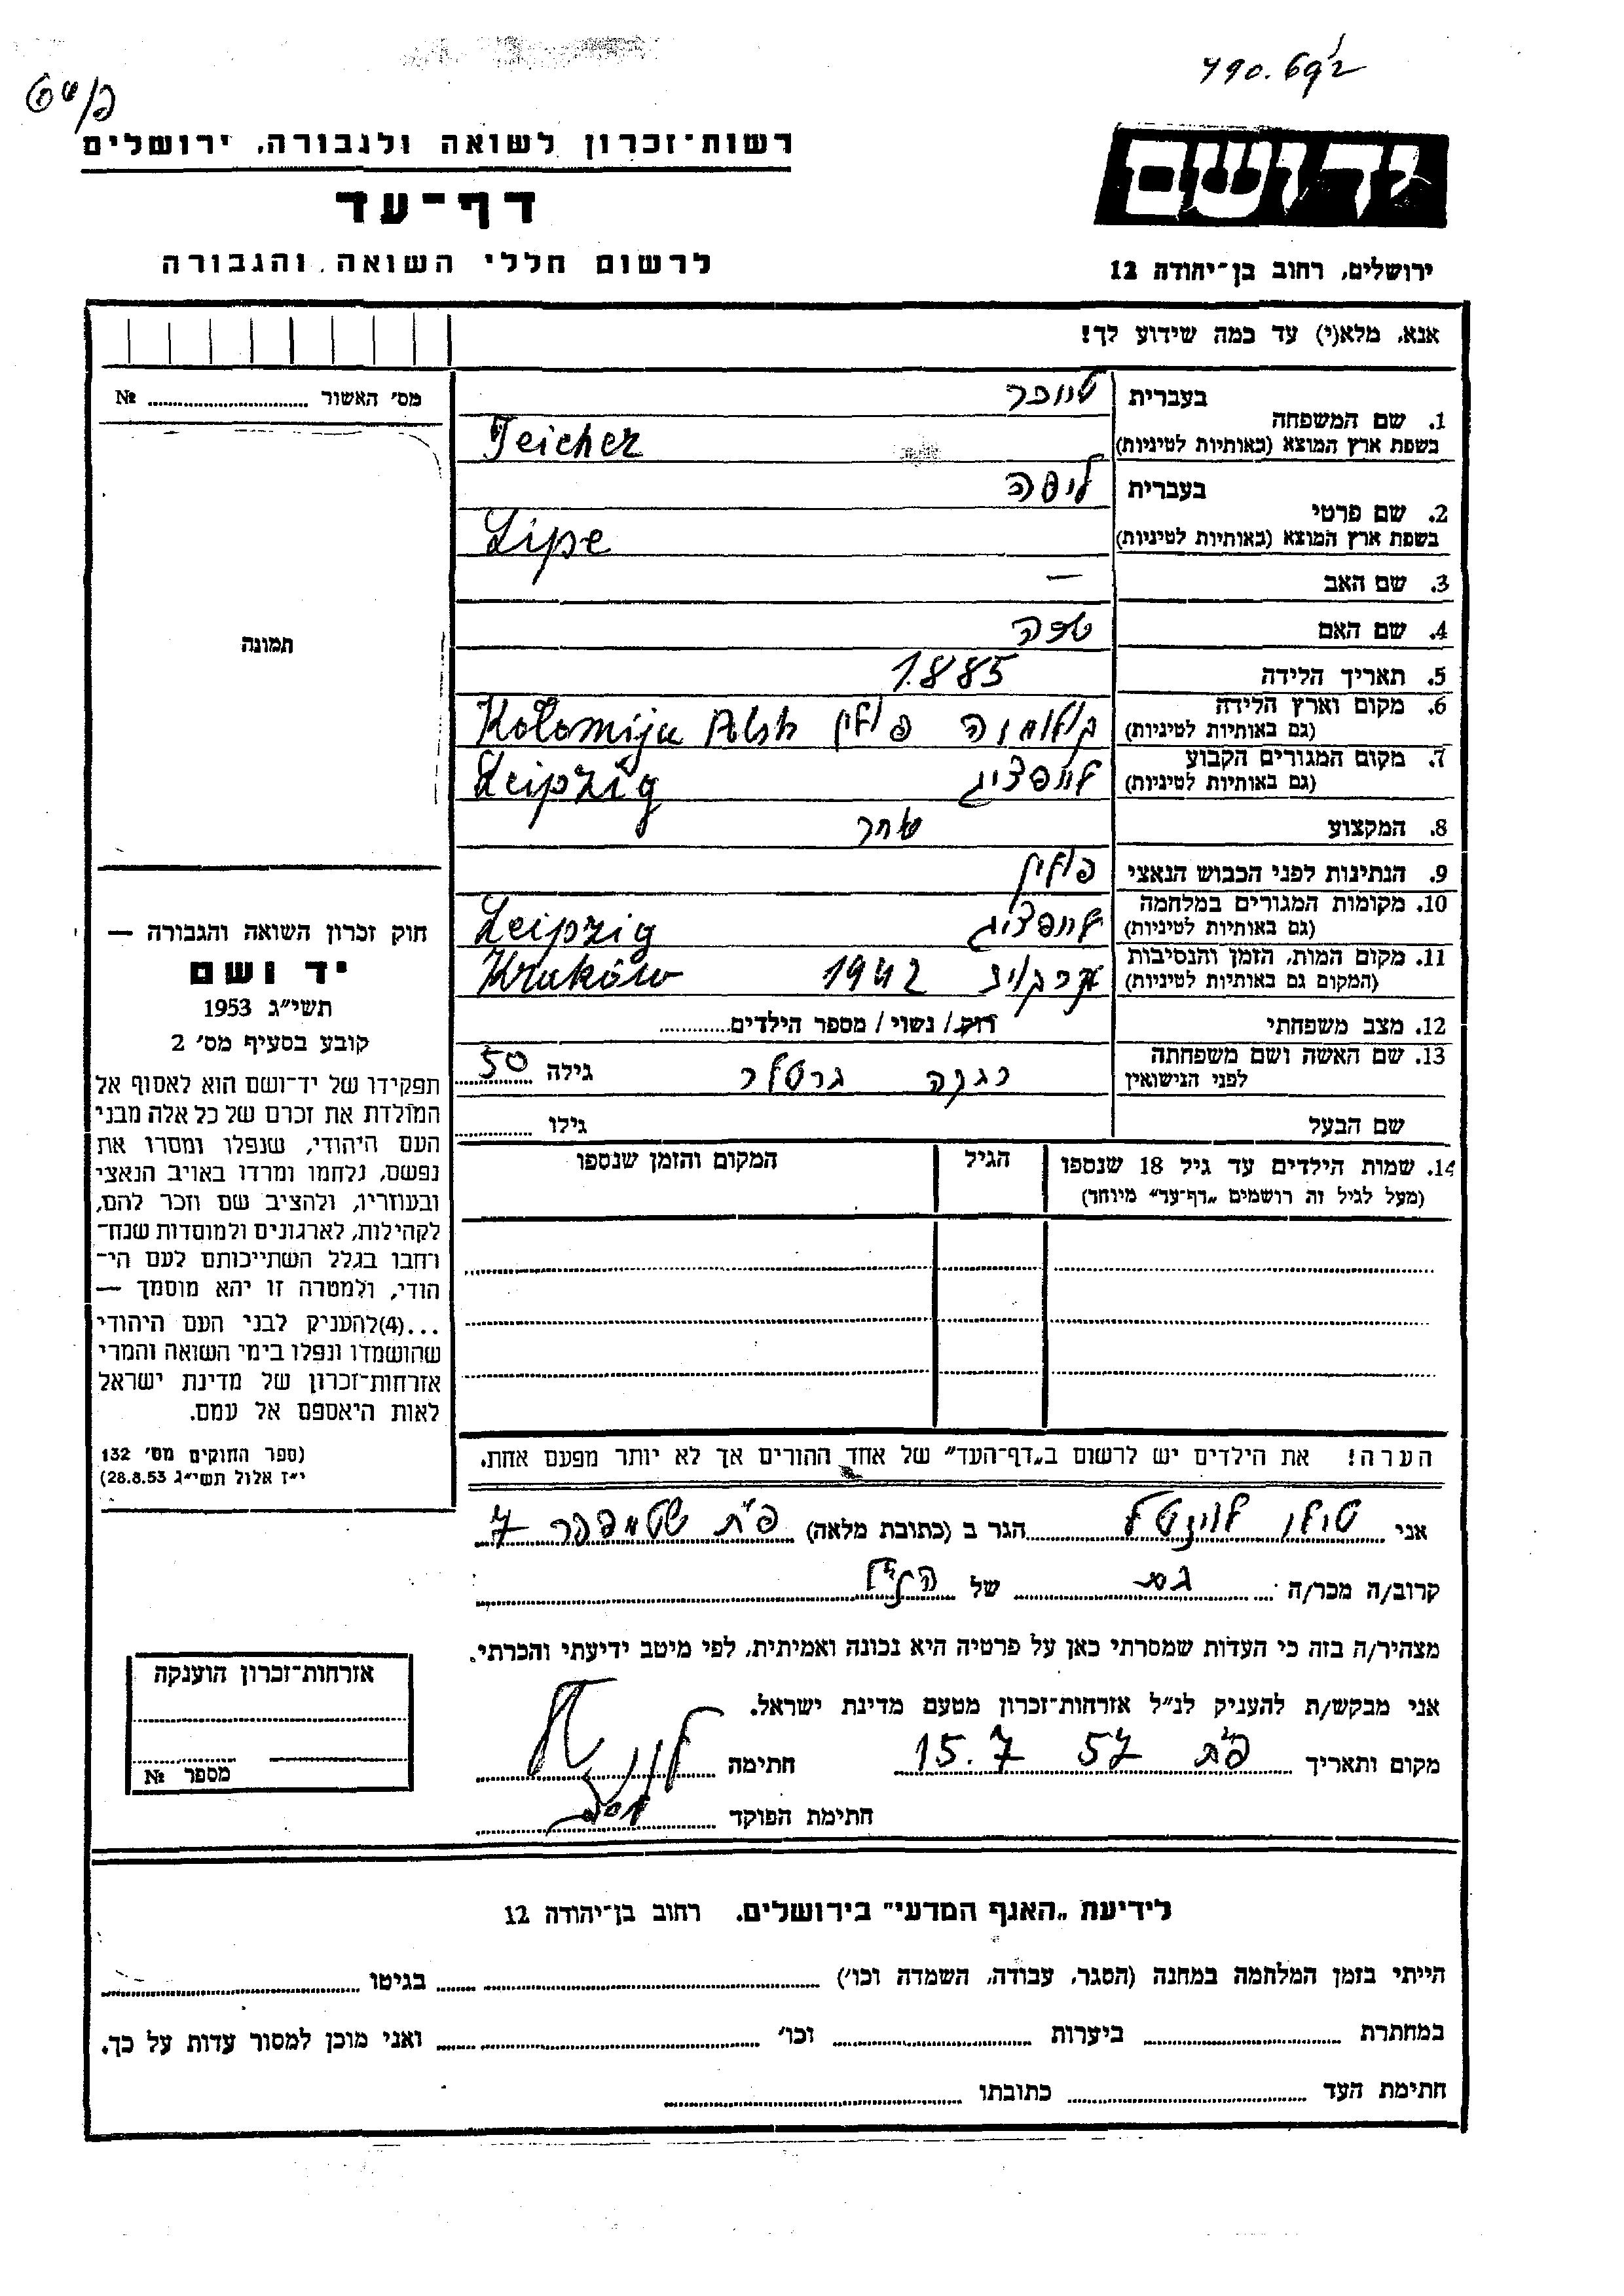 790.692
רשות־זכרון לשואה ולגבורה, ירושלים
דף־עד
לרשום חללי השואה והגבורה
יד ושם
ירושלים, רחוב בן־יהודה 12
אנא, מלא(י) עד כמה שידוע לך!
מס׳ האשור № 
תמונה
1. שם המשפחה בעברית טייכר
בשפת ארץ המוצא (באותיות לטיניות) Teicher
2. שם פרטי בעברית ליפה
בשפת ארץ המוצא (באותיות לטיניות) Lipe
3. שם האב —
4. שם האם
5. תאריך הלידה 1885
6. מקום וארץ הלידה (גם באותיות לטיניות) קולומיה פולין Kołomija Polsk
7. מקום המגורים הקבוע (גם באותיות לטיניות) לייפציג Leipzig
8. המקצוע סוחר
9. הנתינות לפני הכבוש הנאצי פולין
10. מקומות המגורים במלחמה (גם באותיות לטיניות) לייפציג Leipzig
11. מקום המות, הזמן והנסיבות (המקום גם באותיות לטיניות) 1942 Kraków
12. מצב משפחתי רוק/ נשוי/ מספר הילדים
13. שם האשה ושם משפחתה לפני הנישואין גרטלר גילה 50
שם הבעל גילו
14. שמות הילדים עד גיל 18 שנספו (מעל לגיל זה רושמים „דף־עד״ מיוחד)
הגיל
המקום והזמן שנספו
חוק זכרון השואה והגבורה —
יד ושם
תשי״ג 1953
קובע בסעיף מס׳ 2
תפקידו של יד־ושם הוא לאסוף אל
המולדת את זכרם של כל אלה מבני
העם היהודי, שנפלו ומסרו את
נפשם, נלחמו ומרדו באויב הנאצי
ובעוזריו, ולהציב שם וזכר להם,
לקהילות, לארגונים ולמוסדות שנח־
רחבו בגלל השתייכותם לעם הי־
הודי, ולמטרה זו יהא מוסמך —
...(4)להעניק לבני העם היהודי
שהושמדו ונפלו בימי השואה והמרי
אזרחות־זכרון של מדינת ישראל
לאות היאספם אל עמם.
(ספר החוקים מס׳ 132
י״ז אלול תשי״ג 28.8.53)
הערה! את הילדים יש לרשום ב„דף־העד״ של אחד ההורים אך לא יותר מפעם אחת.
אני הגר ב (כתובת מלאה) פ״ת שטמפפר 7
קרוב/ה מכר/ה גיס של הנ״ל
מצהיר/ה בזה כי העדות שמסרתי כאן על פרטיה היא נכונה ואמיתית, לפי מיטב ידיעתי והכרתי.
אני מבקש/ת להעניק לנ״ל אזרחות־זכרון מטעם מדינת ישראל.
מקום ותאריך פ״ת 15.7 57 חתימה
חתימת הפוקד
אזרחות־זכרון הוענקה
מספר №
לידיעת „האגף המדעי״ בירושלים, רחוב בן־יהודה 12
הייתי בזמן המלחמה במחנה (הסגר, עבודה, השמדה וכו׳) בגיטו
במחתרת ביערות וכו׳ ואני מוכן למסור עדות על כך.
חתימת העד כתובתו